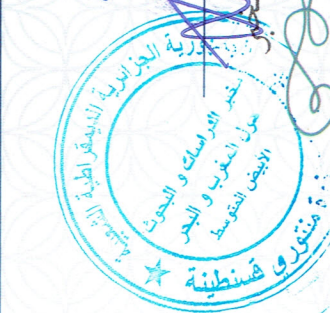 الجمهورية الجزائرية الديمقراطية الشعبية
مخبر الدراسات و البحوث
حول المغرب و البحر
الأبيض المتوسط
منتوري قسنطينة